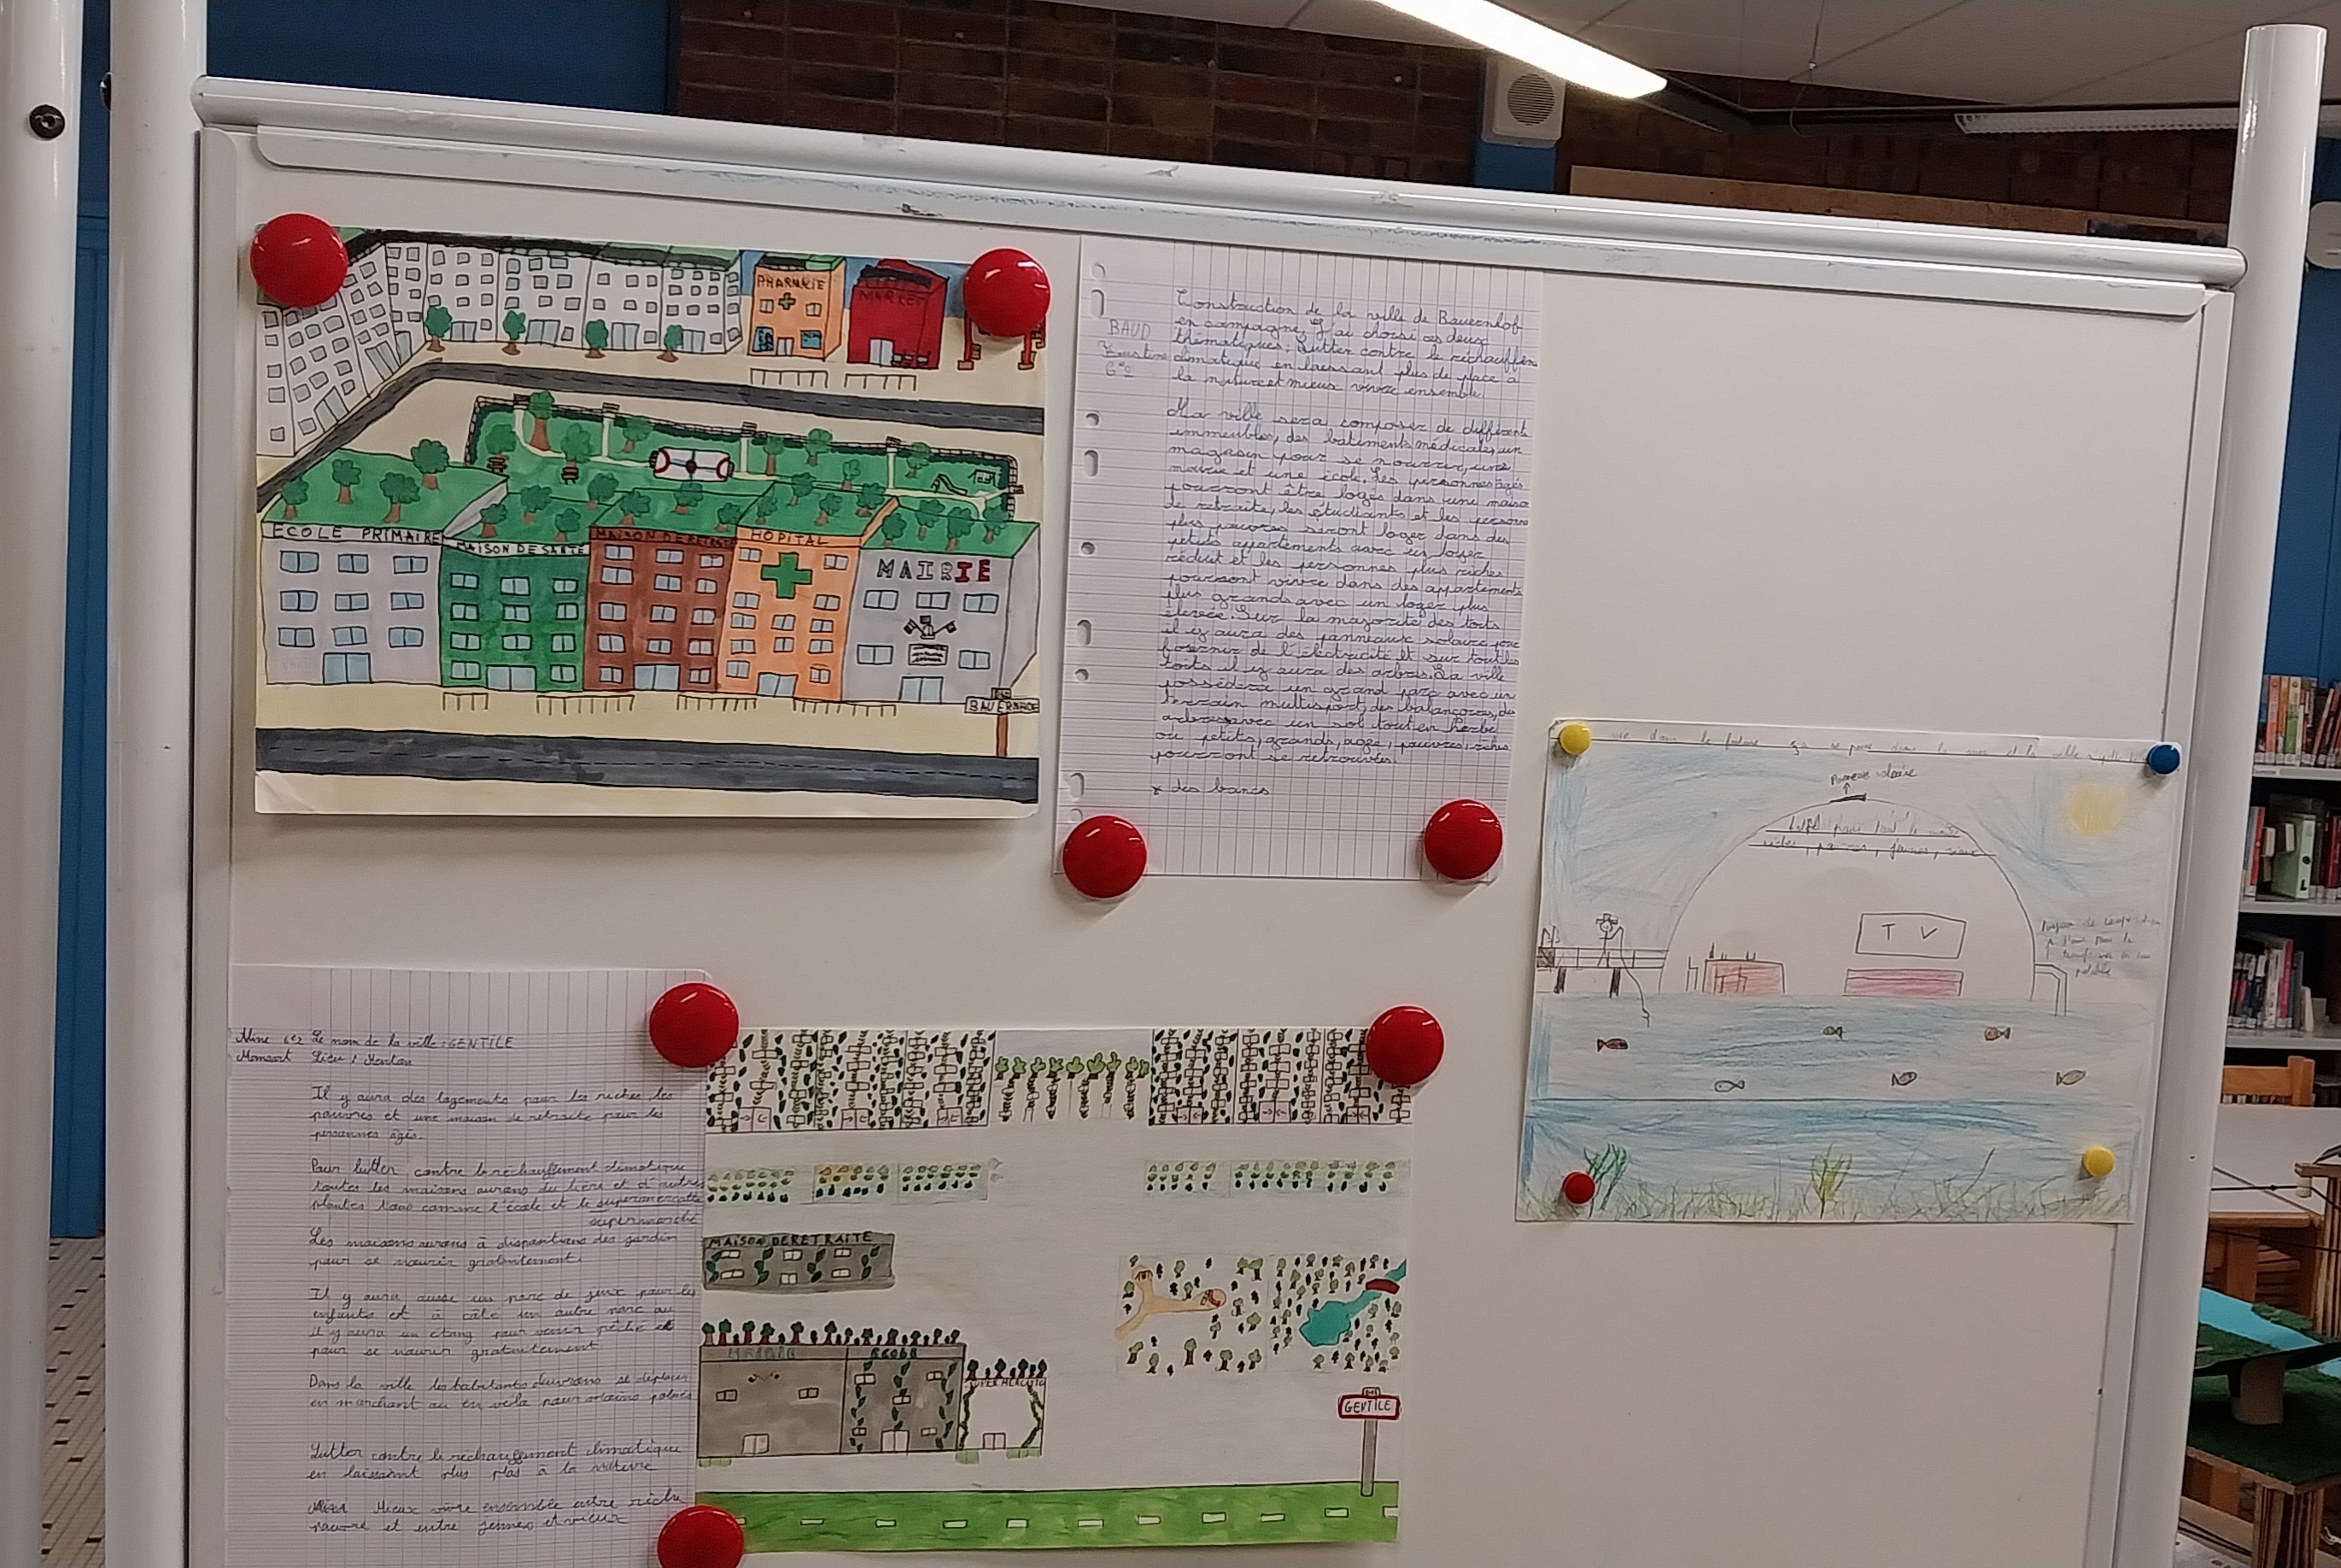 PHARMACIE
MARKET
ECOLE PRIMAIRE
MAISON DE SANTE
MAISON DE RETRAITE
HOPITAL
MAIRIE
BAUERNHOF
BAUD
6e
Construction de la ville de Bauernhof
en campagne. J'ai choisi ces deux
thématiques: Lutter contre le réchauffe
climatique en laissant plus de place à
la nature et mieux vivre ensemble.
Ma ville sera composer de différents
immeubles, des bâtiments médicales, un
magasin pour se nourrir, une
mairie et une école. Les personnes agés
pourront être logés dans une maison
de retraite, les étudiants et les personne
plus pauvres seront loger dans des
petits appartements avec un loyer
réduit et les personnes plus riches
pourront vivre dans des appartements
plus grands avec un loyer plus
élevée. Sur la majorité des toits
il y aura des panneaux solaire pour
fournir de l'électricité et sur tout les
toits il y aura des arbres. La ville
possédera un grand parc avec un
terrain multisport, des balançoires, des
arbres avec un sol tout en herbe
où petits, grands, agé, pauvres, riches
pourront se retrouvés.
* des bancs
dans le future ça se passe dans la mer et la ville
Panneau solaire
pour tout le monde
riches, pauvres, jeunes, vieux
T V
potable
6e2 Le nom de la ville: GENTILE
Lieu: Menton
Il y aura des logements pour les riches les
pauvres et une maison de retraite pour les
personnes âgés.
Pour lutter contre le réchauffement climatique
toutes les maisons aurons du lierre et d'autres
plantes tous comme l'école et le supermercatto
supermarché
Les maisons aurons à dispositions des jardin
pour se nourrir gratuitement.
Il y aura aussi un parc de jeux pour les
enfants et à côté un autre parc ou
il y aura un étang pour venir pêché et
pour se nourir gratuitement
Dans la ville les habitants devrons se déplacer
en marchant ou en vélo pour moins polués
Lutter contre le réchauffement climatique
en laissant plus plas à la nature
Mieux vivre ensemble entre riche
pauvre et entre jeunes et vieux
MAISON DE RETRAITE
GENTILE